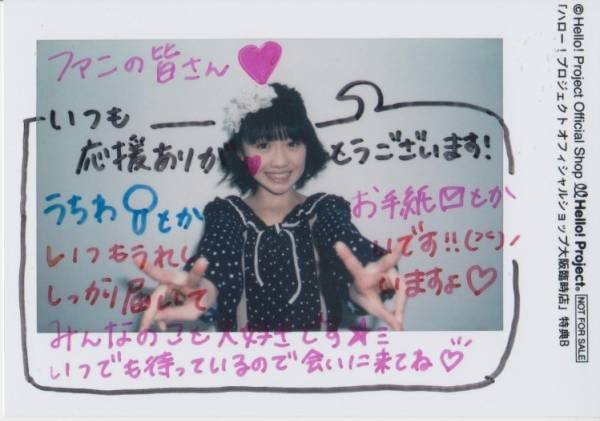 ファンの皆さん♡
いつも
応援ありがとうございます!
うちわとか お手紙とか
いつもうれしいです!!
しっかり届いていますよ♡
みんなのこと大好きです★ミ
いつでも待っているので会いに来てね♡
©Hello! Project Official Shop Hello! Project. NOT FOR SALE
「ハロー!プロジェクトオフィシャルショップ大阪臨時店」特典B